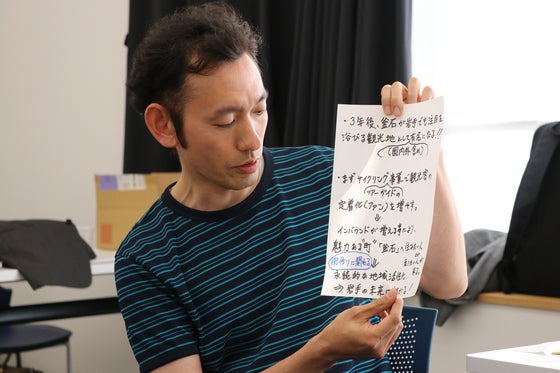 ・3年後、釜石が岩手でも注目を
浴びる観光地として有名になる!!
(国内外含め)
・まずサイクリング事業で観光客の
ツアーガイドの
定着化(ファン)を増やす。
⇓
インバウンドが増える事により、
魅力ある町"釜石"へ
街作りに関わる
⇓
永続的な地域活性化
⇒岩手の未来